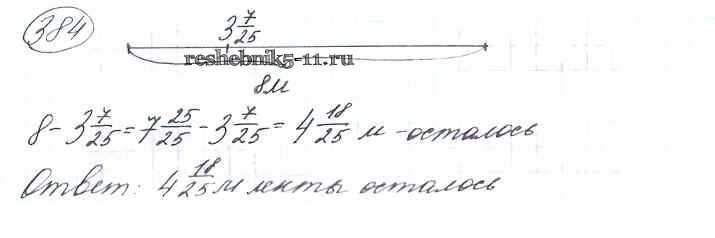 384
3 7/25
reshebnik5-11.ru
8м
8 - 3 7/25 = 7 25/25 - 3 7/25 = 4 18/25 м - осталось
Ответ: 4 18/25 м ленты осталось